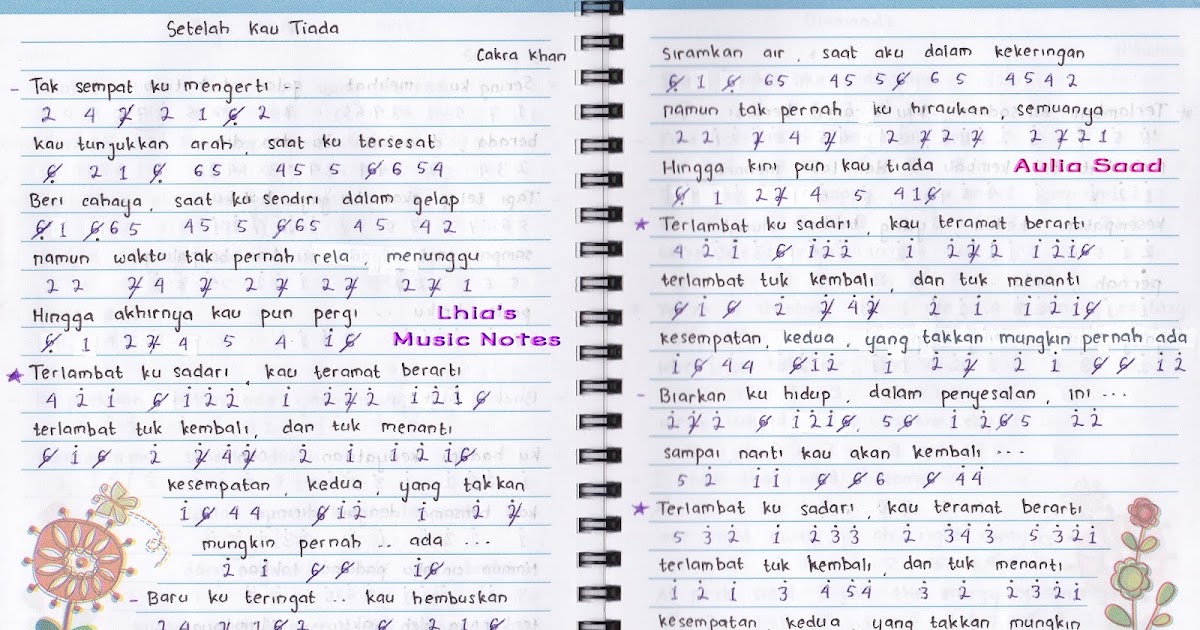 Setelah Kau Tiada
Cakra Khan
- Tak sempat ku mengerti -
2 4 2̸ 2 1 6̸ 2
kau tunjukkan arah, saat ku tersesat
6̸ 2 1 6̸ 65 45 5 6̸ 6 54
Beri cahaya, saat ku sendiri dalam gelap
6̸ 1 6̸ 65 45 5 6̸65 45 42
namun waktu tak pernah rela, menunggu
22 2̸4 2̸ 22̸ 22̸ 22̸ 1
Hingga akhirnya kau pun pergi
6̸ 1 22̸ 4 5 4 i̇6̸
Lhia's
Music Notes
★ Terlambat ku sadari, kau teramat berarti
4 2̇ 1̇ 6̸ 1̇ 2̇ 2̇ 1̇ 2̇ 2̸̇ 2̇ 1̇ 2̇ 1̇ 6̸
terlambat tuk kembali, dan tuk menanti
6̸ 1̇ 6̸ 2̇ 2̸̇ 4̇ 2̸̇ 2̇ 1̇ 1̇ 2̇ 1̇ 6̸
kesempatan, kedua, yang takkan
1̇ 6̸ 4 4 6̸ 1̇ 2̇ 1̇ 2̇ 2̸̇
mungkin pernah .. ada ...
2̇ 1̇ 6̸ 6̸ 1̇6̸
- Baru ku teringat ... kau hembuskan
Siramkan air, saat aku dalam kekeringan
6̸ 1 6̸ 65 45 56̸ 6 5 4 5 4 2
namun tak pernah ku hiraukan, semuanya
22 2̸ 4 2̸ 2 2̸ 2 2̸ 2 2̸ 2 1
Hingga kini pun kau tiada
6̸ 1 22̸ 4 5 416̸
Aulia Saad
★ Terlambat ku sadari, kau teramat berarti
4 2̇ 1̇ 6̸ 1̇ 2̇ 2̇ 1̇ 2̇ 2̸̇ 2̇ 1̇ 2̇ 1̇ 6̸
terlambat tuk kembali, dan tuk menanti
6̸ 1̇ 6̸ 2̇ 2̸̇ 4̇ 2̸̇ 2̇ 1̇ 1̇ 2̇ 1̇ 6̸
kesempatan, kedua, yang takkan mungkin pernah ada
1̇ 6̸ 4 4 6̸ 1̇ 2̇ 1̇ 2̇ 2̸̇ 2̇ 1̇ 6̸ 6̸ 1̇ 2̇
- Biarkan ku hidup, dalam penyesalan, ini ...
2̇ 2̸̇ 2̇ 6̸ 1̇ 2̇ 1̇ 6̸ 5 6̸ 1̇ 2̇ 6̸ 5 2̇ 2̇
sampai nanti kau akan kembali ...
5 2̇ 1̇ 1̇ 6̸ 6̸ 6 6̸ 4̇ 4̇
★ Terlambat ku sadari, kau teramat berarti
5 3̇ 2̇ 1̇ 2̇ 3̇ 3̇ 2̇ 3̇ 4̇ 3̇ 5̇ 3̇ 2̇ 1̇
terlambat tuk kembali, dan tuk menanti
1̇ 2̇ 1̇ 3̇ 4̇ 5̇ 4̇ 3̇ 2̇ 2̇ 3̇ 2̇ 1̇
kesempatan, kedua, yang takkan mungkin